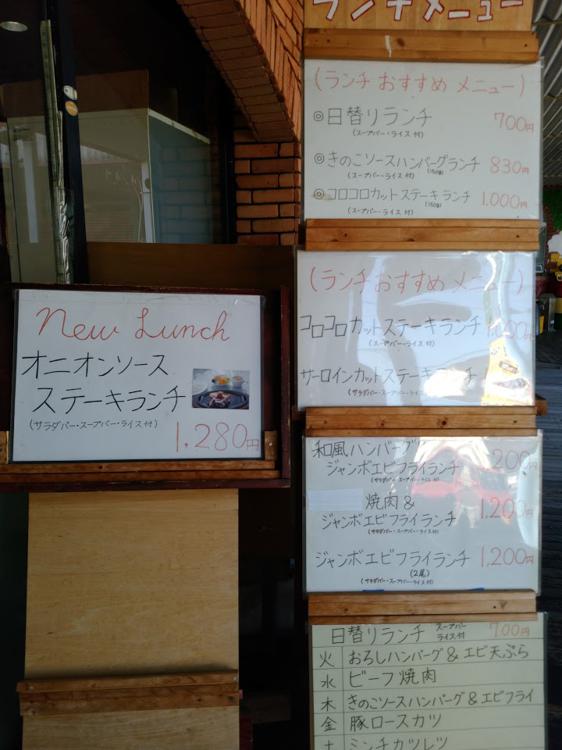 New Lunch
オニオンソース
ステーキランチ
(サラダバー・スープバー・ライス付)
1,280円
ランチメニュー
(ランチ おすすめ メニュー)
◎日替りランチ 700円
(スープバー・ライス付)
◎きのこソースハンバーグランチ 830円
(スープバー・ライス付) (150g)
◎コロコロカットステーキランチ 1,000円
(スープバー・ライス付) (150g)
(ランチ おすすめ メニュー)
コロコロカットステーキランチ
(スープバー・ライス付)
サーロインカットステーキランチ
(サラダバー・スープバー・ライス付)
和風ハンバーグ
ジャンボエビフライランチ
(サラダバー・スープバー・ライス付)
焼肉&
ジャンボエビフライランチ 1,200円
(サラダバー・スープバー・ライス付)
ジャンボエビフライランチ 1,200円
(2尾)
(サラダバー・スープバー・ライス付)
日替りランチ スープバー ライス付 700円
火 おろしハンバーグ&エビ天ぷら
水 ビーフ焼肉
木 きのこソースハンバーグ&エビフライ
金 豚ロースカツ
土 ミンチカツレツ